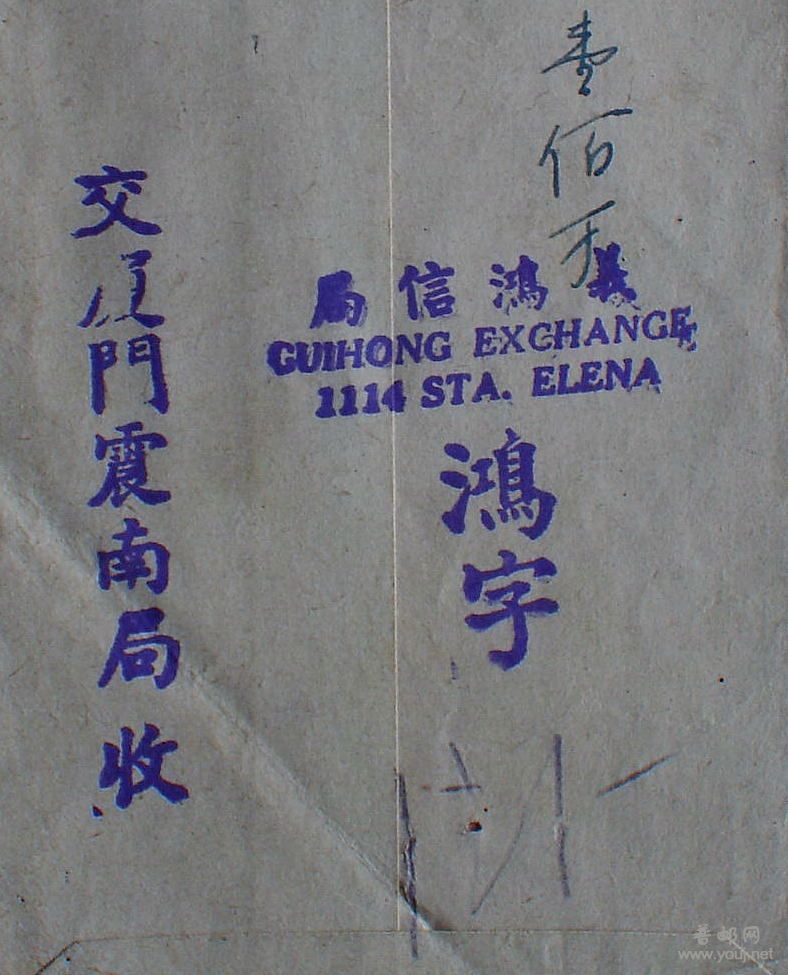 壹佰
義鴻信局
GUIHONG EXCHANGE
1114 STA. ELENA
鴻字
交厦門震南局收
普邮网
www.youj.net